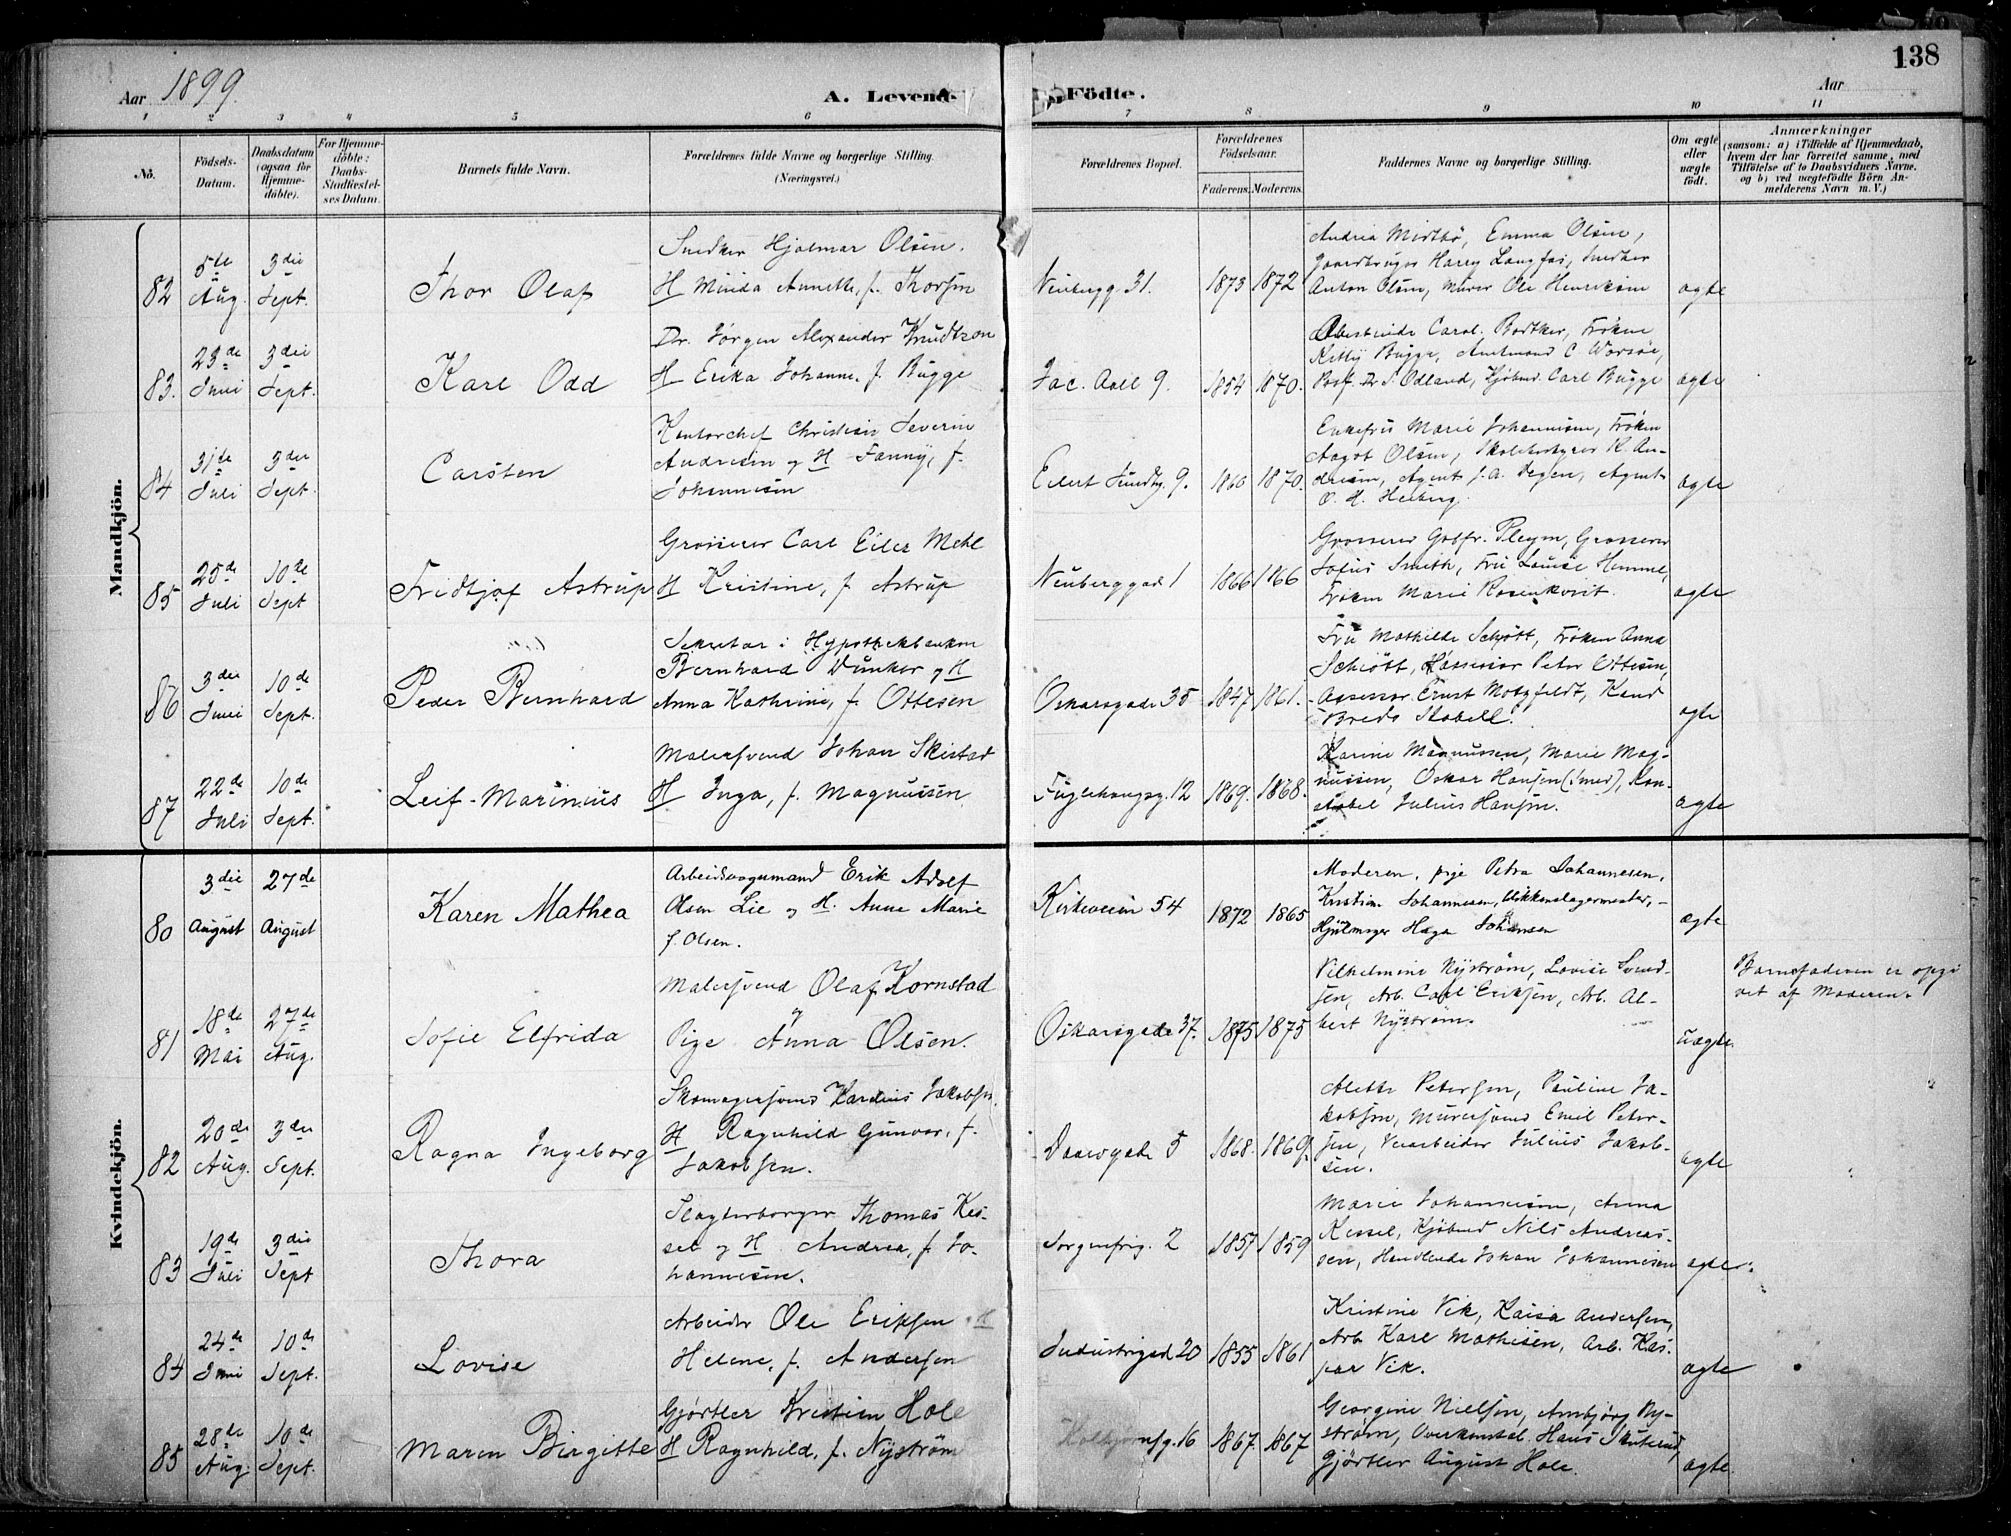 138
Aar 1899.
A. Levende Födte.
Aar
1 2 3 4 5 6 7 8 9 10 11
No.
Födsels-Datum.
Daabsdatum (ogsaa for Hjemme-döbte).
For Hjemme-döbte: Daabs-Stadfæstel-ses Datum.
Barnets fulde Navn.
Forældrenes fulde Navne og borgerlige Stilling. (Næringsvei.)
Forældrenes Bopæl.
Forældrenes Födselsaar.
Faderens. Moderens.
Faddernes Navne og borgerlige Stilling.
Om ægte eller uægte födt.
Anmærkninger
(saasom: a) i Tilfælde af Hjemmedaab, hvem der har forrettet samme, med Tilföielse af to Daabsvidners Navne. og b) ved uægtefödte Börn An-melderens Navn m. V.)
Mandkjön.
82 5te Aug. 3die Sept. Thor Olaf
Snedker Hjalmar Olsen.
H Minda Annette, f. Thorsen
Neubergg. 31. 1873 1872
Andrea Midtbö, Emma Olsen,
Gaardbruger Harry Langfos, Snedker
Anton Olsen, Murer Ole Henriksen
ægte
83. 23de Juni 3die Sept. Karl Odd
Dr. Jörgen Alexander Knudtzon
H Erika Johanne, f. Bugge
Jac. Aall 9. 1854 1870.
Oberstinde Carol. Bödtker, Fröken
Kitty Bugge, Amtmand C. Worsöe,
Prof. Dr. S. Odland, Kjöbmd. Carl Bugge
ægte
84 31te Juli 3die Sept. Carsten
Kontorchef Christian Severin
Andresen og H Fanny, f.
Johannesen
Eilert Sundtg. 9. 1866 1870.
Enkefru Marie Johannesen, Fröken
Aagot Olsen, Skolebestyrer K. An-
dresen, Agent J. A. Degen, Agent
O. H. Heiberg.
ægte
85 25de Juli 10de Sept Fridtjof Astrup
Grosserer Carl Eiler Mehl
H Kristine, f. Astrup
Neuberggad 1 1866 1866
Grosserer Gotfr. Pleym, Grosserer
Sofus Smith, Fru Louise Hemme,
Fröken Marie Rosenkvist.
ægte
86 3die Juni 10de Sept. Peder Bernhard
Sekretær i Hypothekbanken
Bernhard Dunker og H
Anna Kathrine, f. Ottesen
Oskarsgade 35 1847 1861.
Fru Mathilde Schjött, Fröken Anna
Schiött, Assessor Peter Ottesen,
Assessor Ernst Motzfeldt, Kand
Bredo Stabell.
ægte
87 22de Juli 10de Sept. Leif-Marinius
Malersvend Johan Skistad
H Inga, f. Magnussen
Fuglehaugsg. 12 1869. 1868.
Karine Magnussen, Marie Mag-
nussen, Oskar Hansen (Smed), Kon-
stabel Julius Hansen.
ægte
Kvindekjön.
80 3die August 27de August Karen Mathea
Arbeidsvognmand Erik Adolf
Olsen Lie og H. Anne Marie
f. Olsen.
Kirkeveien 54 1872 1865
Moderen, pige Petra Johannesen,
Kristian Johannesen, Blikkenslagermester,
Hjulmager Haga Johansen
ægte
81 18de Mai 27de Aug. Sofie Elfrida
Malersvend Olaf Kornstad
og
Pige Anna Olsen.
Oskarsgade 37. 1875 1875
Vilhelmine Nyström, Lovise Svend-
sen, Arb. Carl Eriksen, Arb. Al-
bert Nyström.
uægte.
Barnefaderen er opgi
vet af Moderen.
82 20de Aug. 3die Sept. Ragna Ingeborg
Skomagersvend Kardius Jakobsen.
H Ragnhild Gunvor, f.
Jakobsen.
Daasgade 5 1868. 1869.
Alette Petersen, Pauline Ja-
kobsen, Mursvend Emil Peter-
sen, Veiarbeider Julius Jakob-
sen.
ægte
83 19de Juli 3die Sept Thora
Slagterborger Thomas Kes-
sel og H Andrea, f. Jo-
hannesen.
Sorgenfrig. 2 1857 1859
Marie Johannesen, Anna
Kessel, Kjöbmd Nils Andreas-
sen, Handlende Johan Johannesen
ægte
84 24de Juni 10de Sept. Lovise
Arbeider Ole Eriksen H
Helene, f. Andersen
Industrigad 20 1855 1861
Kristine Vik, Kaisa Andersen,
Arb Karl Mathisen, Arb. Kas-
par Vik.
ægte
85 28de Aug. 10de Sept. Maren Birgitte
Gjörtler Kristian Hole
H Ragnhild, f. Nyström
Holbergsg. 16 1867. 1867
Georgine Nielsen, Ambjörg Ny-
ström, Overkonstab. Hans Skuterud,
Gjörtler August Hole.
ægte.